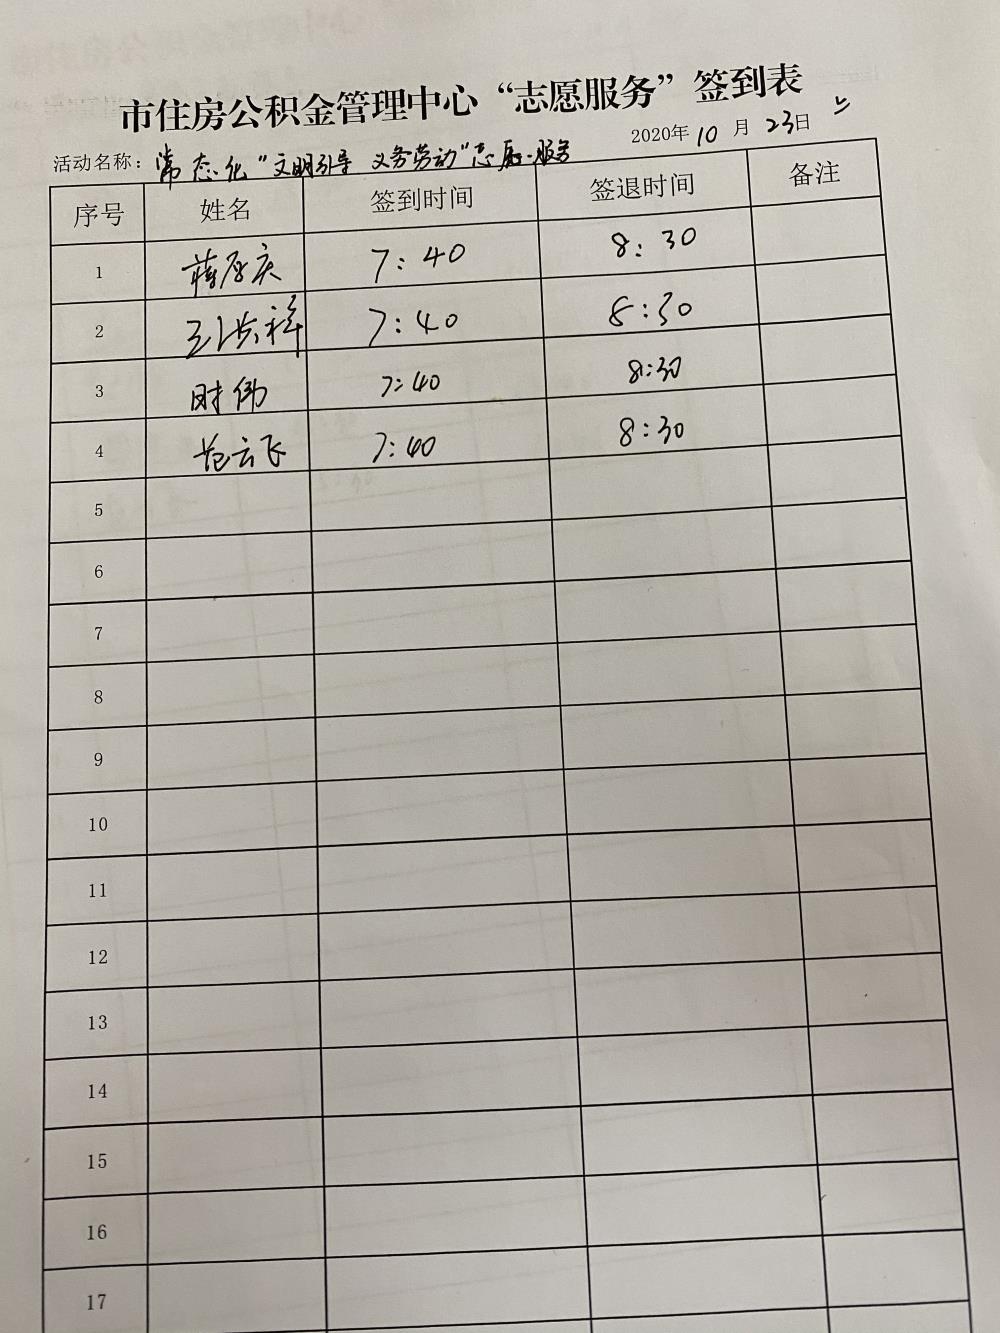 市住房公积金管理中心“志愿服务”签到表
2020年10月23日
活动名称：常态化“文明引导 义务劳动”志愿服务
序号 姓名 签到时间 签退时间 备注
1 蒋厚庆 7:40 8:30
2 7:40 8:30
3 时伟 7:40 8:30
4 范云飞 7:40 8:30
5
6
7
8
9
10
11
12
13
14
15
16
17